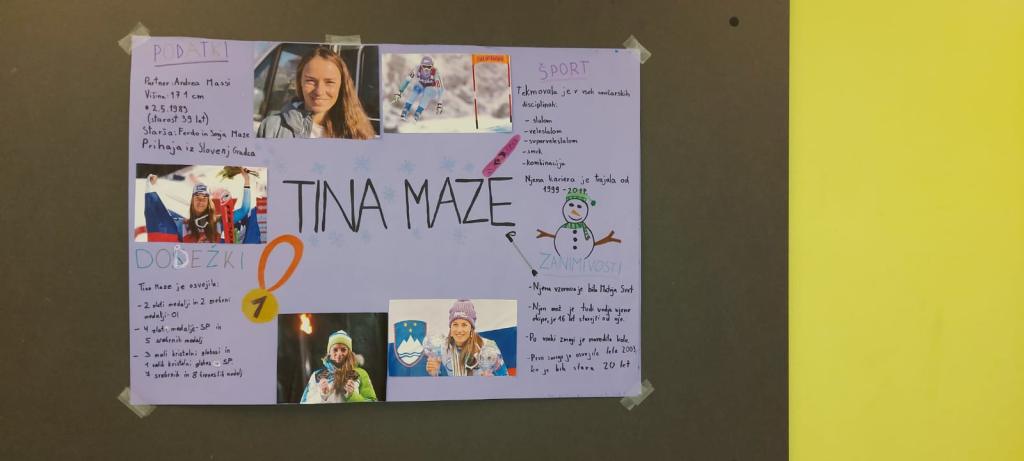 PODATKI
Partner: Andrea Massi
Višina: 171 cm
* 2.5.1983
(starost 39 let)
Starša: Ferdo in Sonja Maze
Prihaja iz Slovenj Gradca
TINA MAZE
DOSEŽKI
Tina Maze je osvojila:
- 2 zlati medalji in 2 srebrni
medalji - OI
- 4 zlat. medalje - SP in
5 srebrnih medalj
- 3 mali kristalni globusi in
1 velik kristalni globus - SP
7 srebrnih in 8 bronastih medalj
1
ŠPORT
Tekmovala je v vseh smučarskih
disciplinah:
- slalom
- veleslalom
- superveleslalom
- smuk
- kombinacija
Njena kariera je trajala od
1999 - 2017.
ZANIMIVOSTI
- Njena vzornica je bila Mateja Svet
- Njen mož je tudi vodja njene
ekipe, je 16 let starejši od nje.
- Po vsaki zmagi je naredila kolo.
- Prvo zmago je osvojila leta 2003,
ko je bila stara 20 let